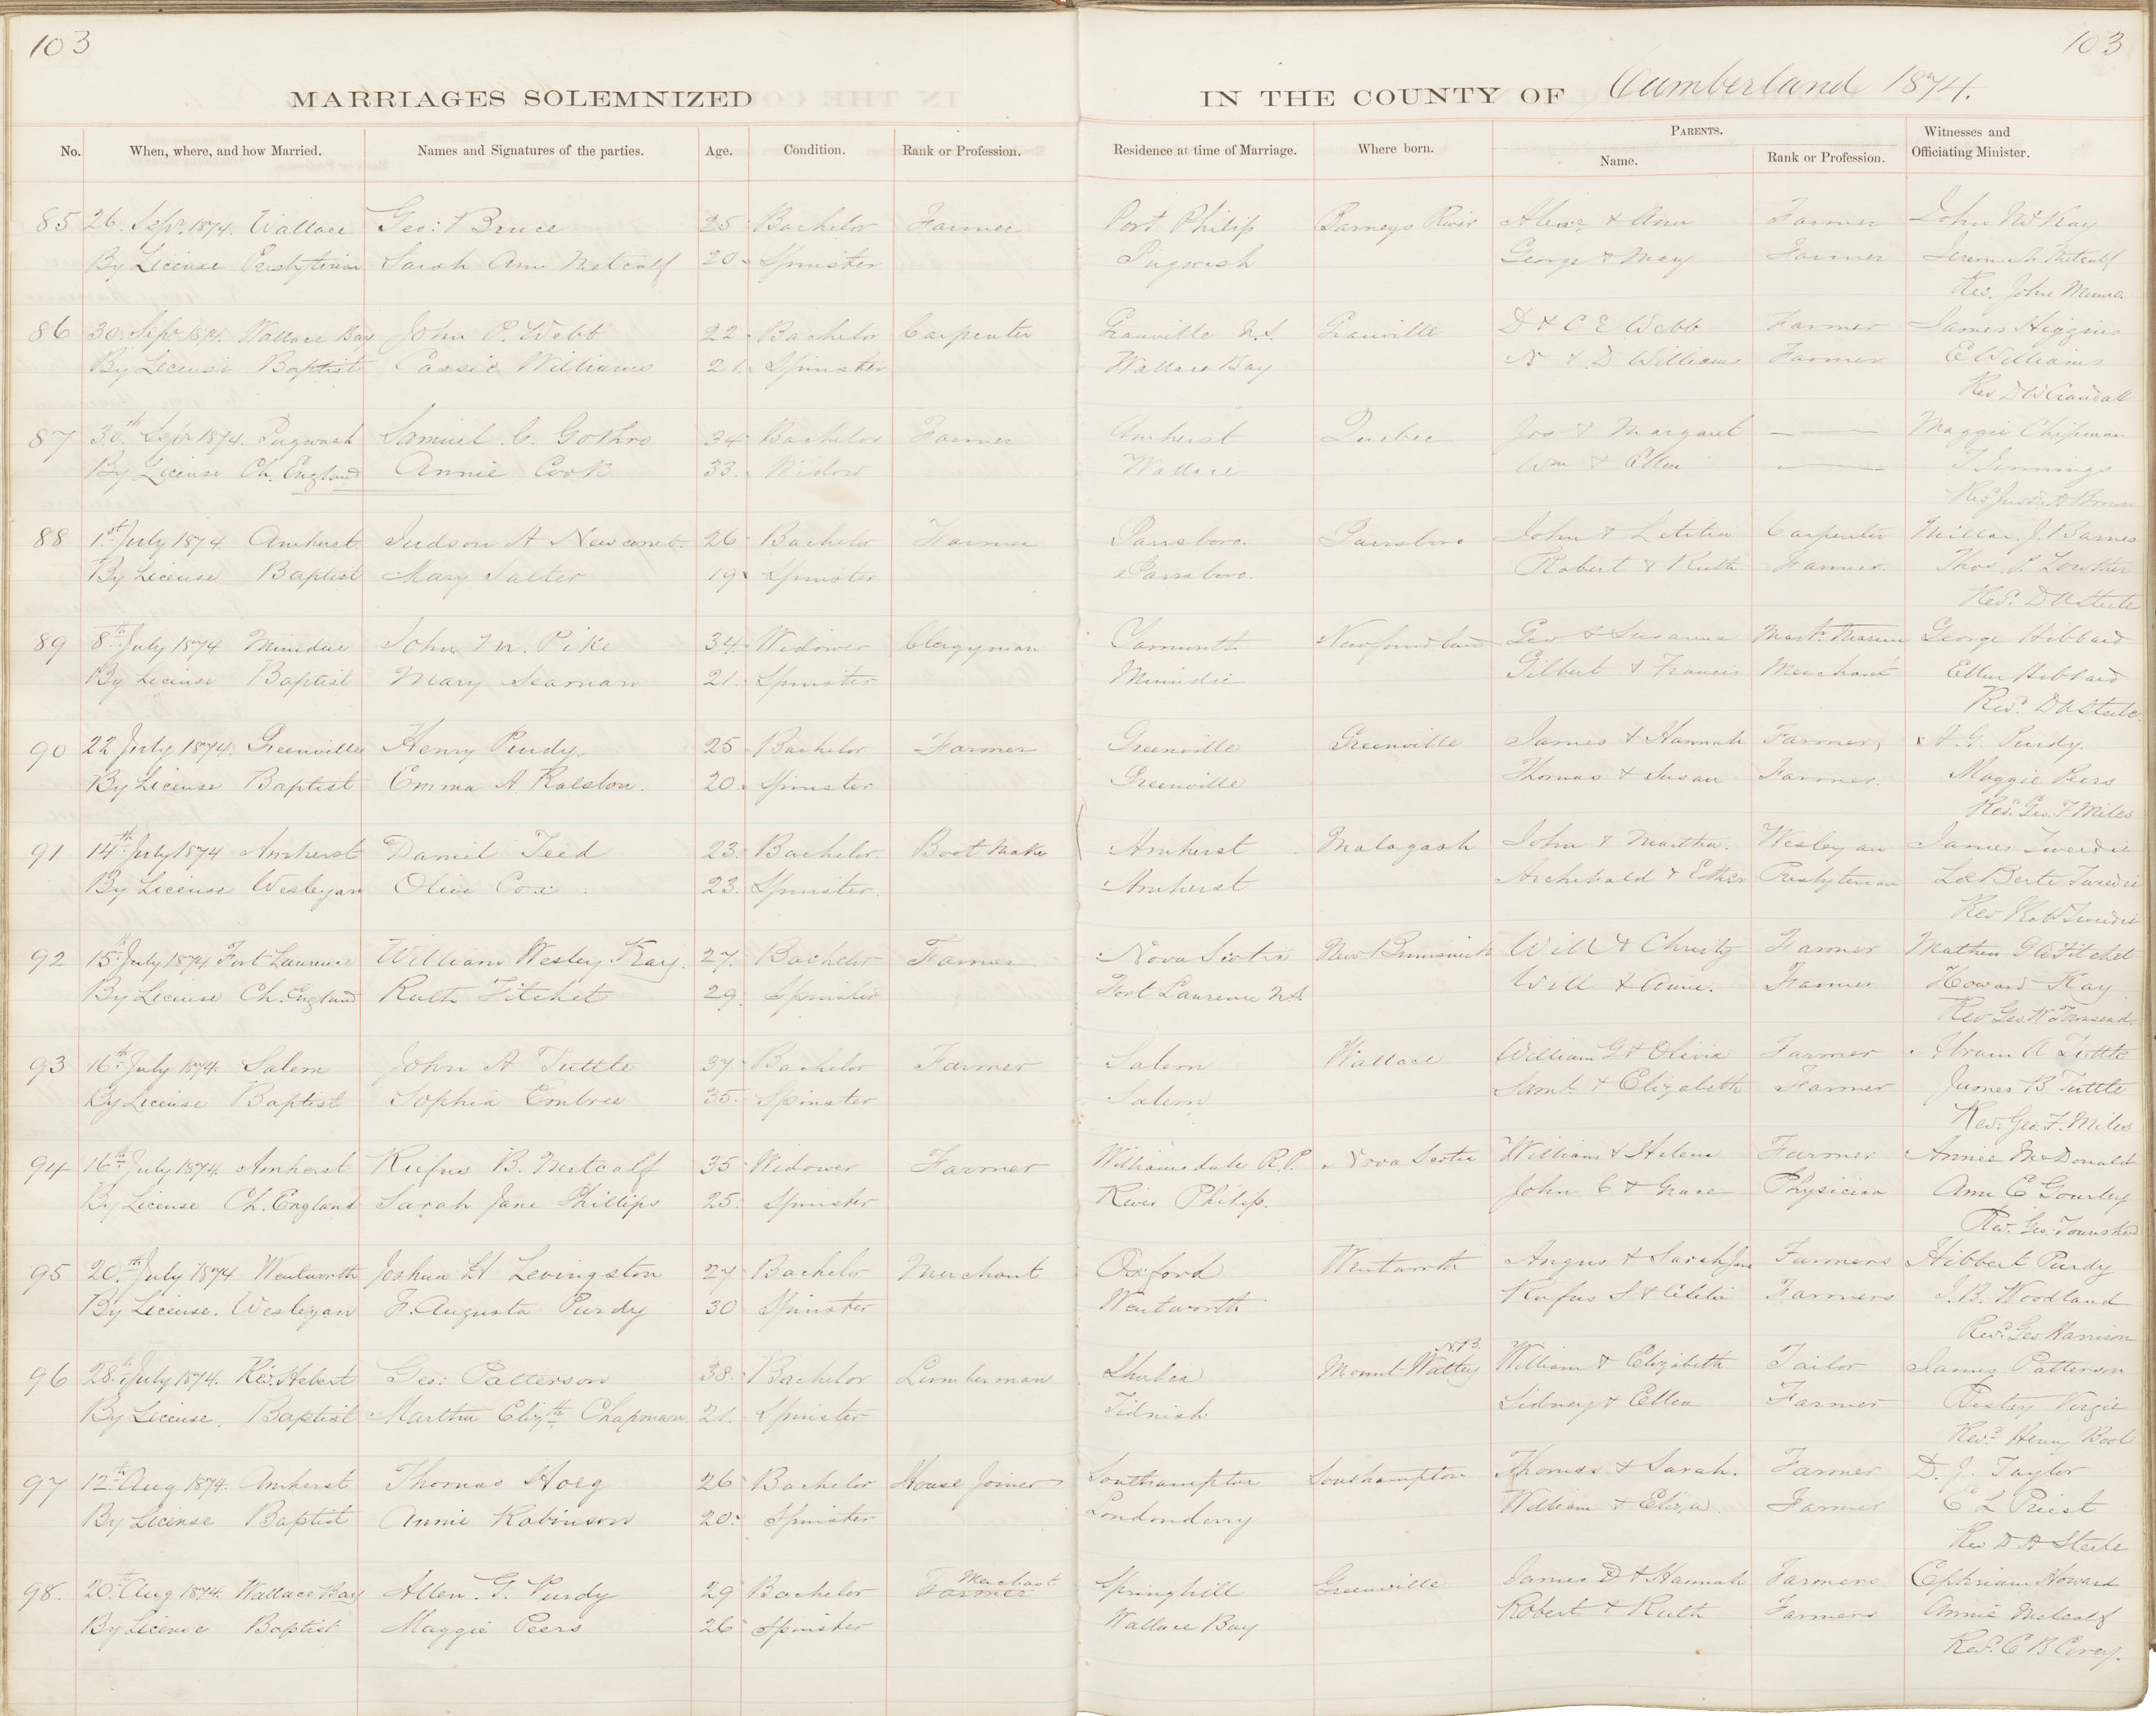 103
103
MARRIAGES SOLEMNIZED IN THE COUNTY OF Cumberland 1874.
No. When, where, and how Married. Names and Signatures of the parties. Age. Condition. Rank or Profession. Residence at time of Marriage. Where born. PARENTS. Name. Rank or Profession. Witnesses and Officiating Minister.
85 26. Sepr. 1874. Wallace Geo: Bruce 25 Bachelor Farmer Port Philip Barneys River Alexr & Ann Farmer John McKay
By License Presbyterian Sarah Ann Metcalf 20 Spinster Pugwash George & Mary Farmer Jeremiah Metcalf
Rev. John Munro
86 30. Sepr 1874. Wallace Bay John P. Webb 22 Bachelor Carpenter Granville N.S. Granville D & C E Webb Farmer James Higgins
By License Baptist Cassie Williams 21. Spinster Wallace Bay N & D Williams Farmer E Williams
Rev D W Crandall
87 30th Sepr 1874. Pugwash Samuel C. Gothro 34 Bachelor Farmer Amherst Quebec Jos & Margaret — Maggie Chipman
By License Ch. England Annie Cook 33. Widow Wallace Wm & Ellen — T Jennings
88 1st July 1874 Amherst Judson A Newcomb. 26 Bachelor Farmer Parrsboro. Parrsboro John & Letitia Carpenter J. Barnes
By License Baptist Mary Salter 19 Spinster Parrsboro. Robert & Ruth Farmer. Thos. P. Lowther
Revd. D A Steele
89 8th July 1874 Minudie John M. Pike 34. Widower Clergyman Yarmouth Newfoundland Geo & Susanna Mastr. Marine George Hibbard
By License Baptist Mary Seaman 21. Spinster Minudie Gilbert & Francis Merchant Ellen Hibbard
Revd. D A Steele
90 22 July 1874. Greenville Henry Purdy. 25 Bachelor Farmer Greenville Greenville James & Hannah Farmer, A. G. Purdy.
By License Baptist Emma A. Ralston. 20. Spinster Greenville Thomas & Susan Farmer. Maggie Peers
Revd. Geo. F Miles
91 14th July 1874 Amherst Daniel Teed 23. Bachelor. Boot Maker Amherst Malagash John & Martha. Wesleyan James Tweedie
By License Wesleyan Olive Cox 23. Spinster. Amherst Archibald & Esther Presbyterian Tweedie
Rev Robt Tweedie
92 15th July 1874 Fort Laurence William Wesley Kay. 27. Bachelor Farmer Nova Scotia New Brunswick Will & Christy Farmer Mathew G W Fitchet
By License Ch. England Ruth Fitchet 29. Spinster Fort Laurence N.S. Will & Annie. Farmer Howard Kay
Rev Geo. Townsend.
93 16th July 1874. Salem John A Tuttle 37 Bachelor Farmer Salem Wallace William G & Olivia Farmer Abram A Tuttle
By License Baptist Sophia Embree 35. Spinster Salem Saml. & Elizabeth Farmer James B Tuttle
Rev. Geo. F. Miles
94 16th July 1874. Amherst Rufus B. Metcalf 35 Widower Farmer Williamsdale R.P. Nova Scotia William & Helena Farmer Annie McDonald
By License Ch. England Sarah Jane Phillips 25. Spinster River Philip. John C & Grace Physician Ann E Gourley
Rev. Geo. Townshend
95 20th July 1874 Wentworth Joshua H Levingston 27 Bachelor Merchant Oxford Wentworth Angus & Sarah Jane Farmers Hibbert Purdy
By License. Wesleyan F. Augusta Purdy 30 Spinster Wentworth Rufus S & Farmers J. B. Woodland
Revd. Geo Harrison
96 28th July 1874. Riv. Hebert Geo: Patterson 38. Bachelor Lumberman Shulea Mount Watley N.B. William & Elizabeth Tailor James Patterson
By License, Baptist Martha Elizth Chapman. 21. Spinster Tidnish Sidney & Ellen Farmer Virgie
Revd. Henry Bool
97 12th Aug 1874. Amherst Thomas Hoeg 26 Bachelor House Joiner Southampton Southampton Thomas & Sarah. Farmer D. J. Taylor
By License Baptist Annie Robinson 20. Spinster Londonderry William & Eliza. Farmer C L Priest
Rev D A Steele
98. 20th Aug 1874. Wallace Bay Allen. G. Purdy 29 Bachelor Farmer Merchant Springhill Greenville James D & Hannah Farmers Ephriam Howard
By License Baptist Maggie Peers 26 Spinster Wallace Bay Robert & Ruth Farmers Annie Metcalf
Revd. C B Corey.